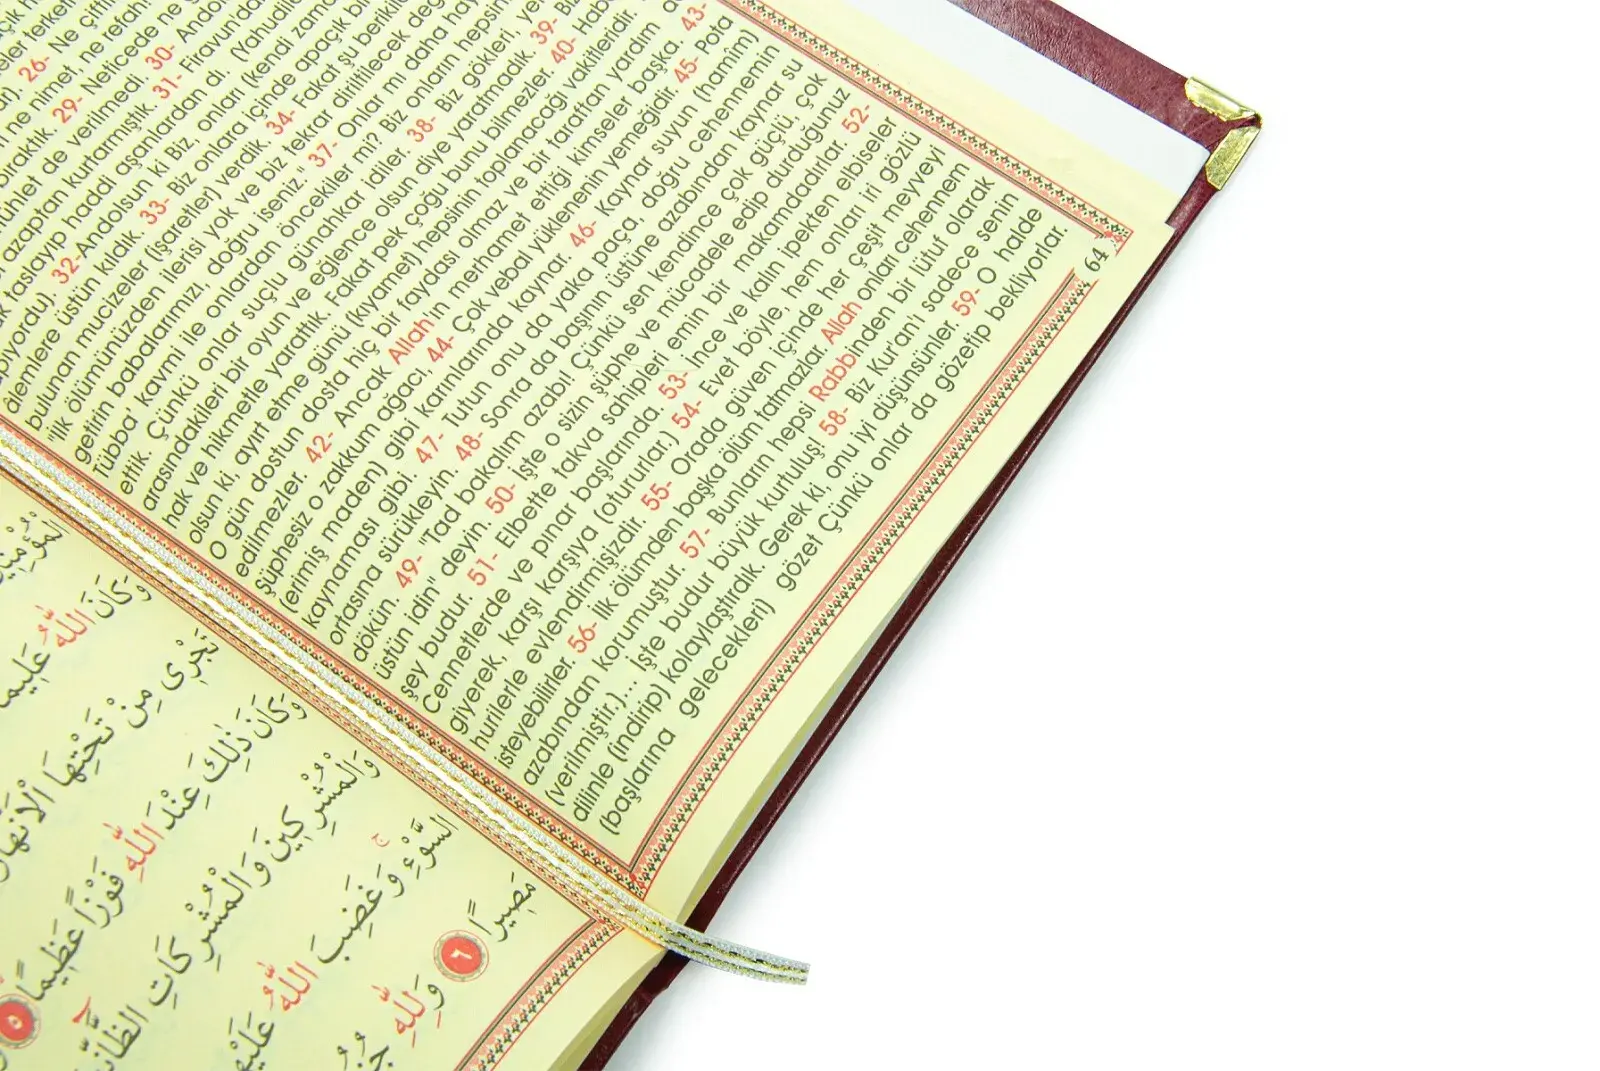 26- Ne
ne nimet, ne refah!
29- Neticede
de verilmedi. 30-
azaptan kurtarmıştık. 31- Firavun'da
taslayıp haddi aşanlardan di.
32- Andolsun ki Biz, onları (kendi
alemlere üstün kıldık. 33- Biz onlara içinde apaçık
bulunan mucizeler (işaretler) verdik. 34- Fakat şu
"ilk ölümünüzden ilerisi yok ve biz tekrar diriltilecek
getirin babalarımızı, doğru iseniz." 37- Onlar mı daha
Tübba' kavmi ile onlardan öncekiler mi? Biz onların
ettik. Çünkü onlar suçlu günahkar idiler. 38- Biz gökleri,
arasındakileri bir oyun ve eğlence olsun diye yaratmadık. 39-
hak ve hikmetle yarattık. Fakat pek çoğu bunu bilmezler. 40-
olsun ki, ayırt etme günü (kıyamet) hepsinin toplanacağı vakitleridir.
O gün dostun dosta hiç bir faydası olmaz ve bir taraftan yardım
edilmezler. 42- Ancak Allah'ın merhamet ettiği kimseler başka. 43-
şüphesiz o zakkum ağacı, 44- Çok vebal yüklenenin yemeğidir. 45- Pota
(erimiş maden) gibi karınlarında kaynar. 46- Kaynar suyun (hamîm)
kaynaması gibi. 47- Tutun onu da yaka paça, doğru cehennemin
ortasına sürükleyin. 48- Sonra da başının üstüne azabından kaynar su
dökün. 49- "Tad bakalım azabı! Çünkü sen kendince çok güçlü, çok
üstün idin" deyin. 50- İşte o sizin şüphe ve mücadele edip durduğunuz
şey budur. 51- Elbette takva sahipleri emin bir makamdadırlar. 52-
Cennetlerde ve pınar başlarında. 53- İnce ve kalın ipekten elbiseler
giyerek, karşı karşıya (otururlar.) 54- Evet böyle, hem onları iri gözlü
hurilerle evlendirmişizdir. 55- Orada güven içinde her çeşit meyveyi
isteyebilirler. 56- İlk ölümden başka ölüm tatmazlar. Allah onları cehennem
azabından korumuştur. 57- Bunların hepsi Rabbinden bir lütuf olarak
(verilmiştir.)... İşte budur büyük kurtuluş! 58- Biz Kur'an'ı sadece senin
dilinle (indirip) kolaylaştırdık. Gerek ki, onu iyi düşünsünler. 59- O halde
(başlarına gelecekleri) gözet Çünkü onlar da gözetip bekliyorlar.
64
وَكَانَ اللّٰهُ عَلِيمًا
تَجْرٖى مِنْ تَحْتِهَا الْاَنْهَارُ
وَكَانَ ذٰلِكَ عِنْدَ اللّٰهِ فَوْزًا عَظٖيمًا ٥
وَالْمُشْرِكٖينَ وَالْمُشْرِكَاتِ
السَّوْءِ وَغَضِبَ اللّٰهُ
مَصٖيرًا ٦ وَلِلّٰهِ